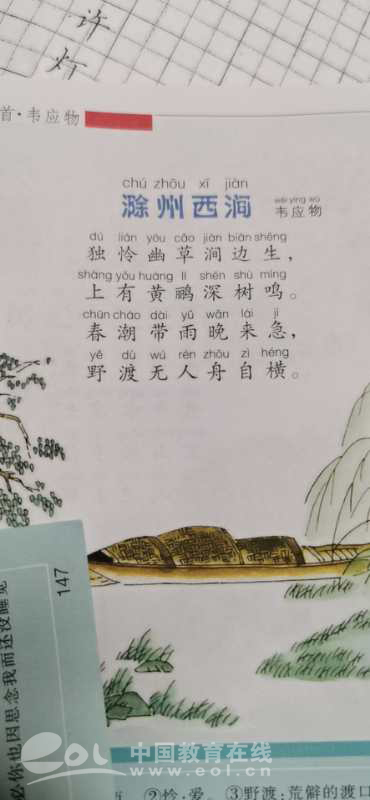 许
灯
首·韦应物
chú zhōu xī jiàn
滁州西涧
wéi yìng wù
韦应物
dú lián yōu cǎo jiàn biān shēng
独怜幽草涧边生，
shàng yǒu huáng lí shēn shù míng
上有黄鹂深树鸣。
chūn cháo dài yǔ wǎn lái jí
春潮带雨晚来急，
yě dù wú rén zhōu zì héng
野渡无人舟自横。
147
必你也因思念我而还没睡
eol 中国教育在线
www.eol.cn
②怜：爱。 ③野渡：荒僻的渡口